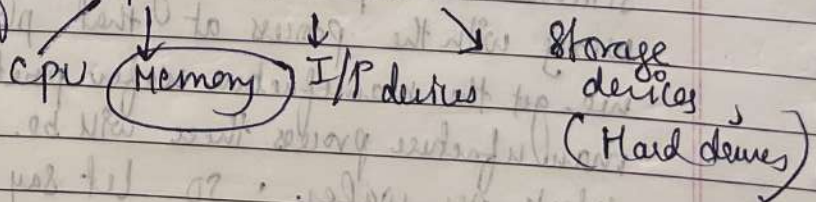 CPU Memory I/P devices Storage
devices,
(Hard devices)